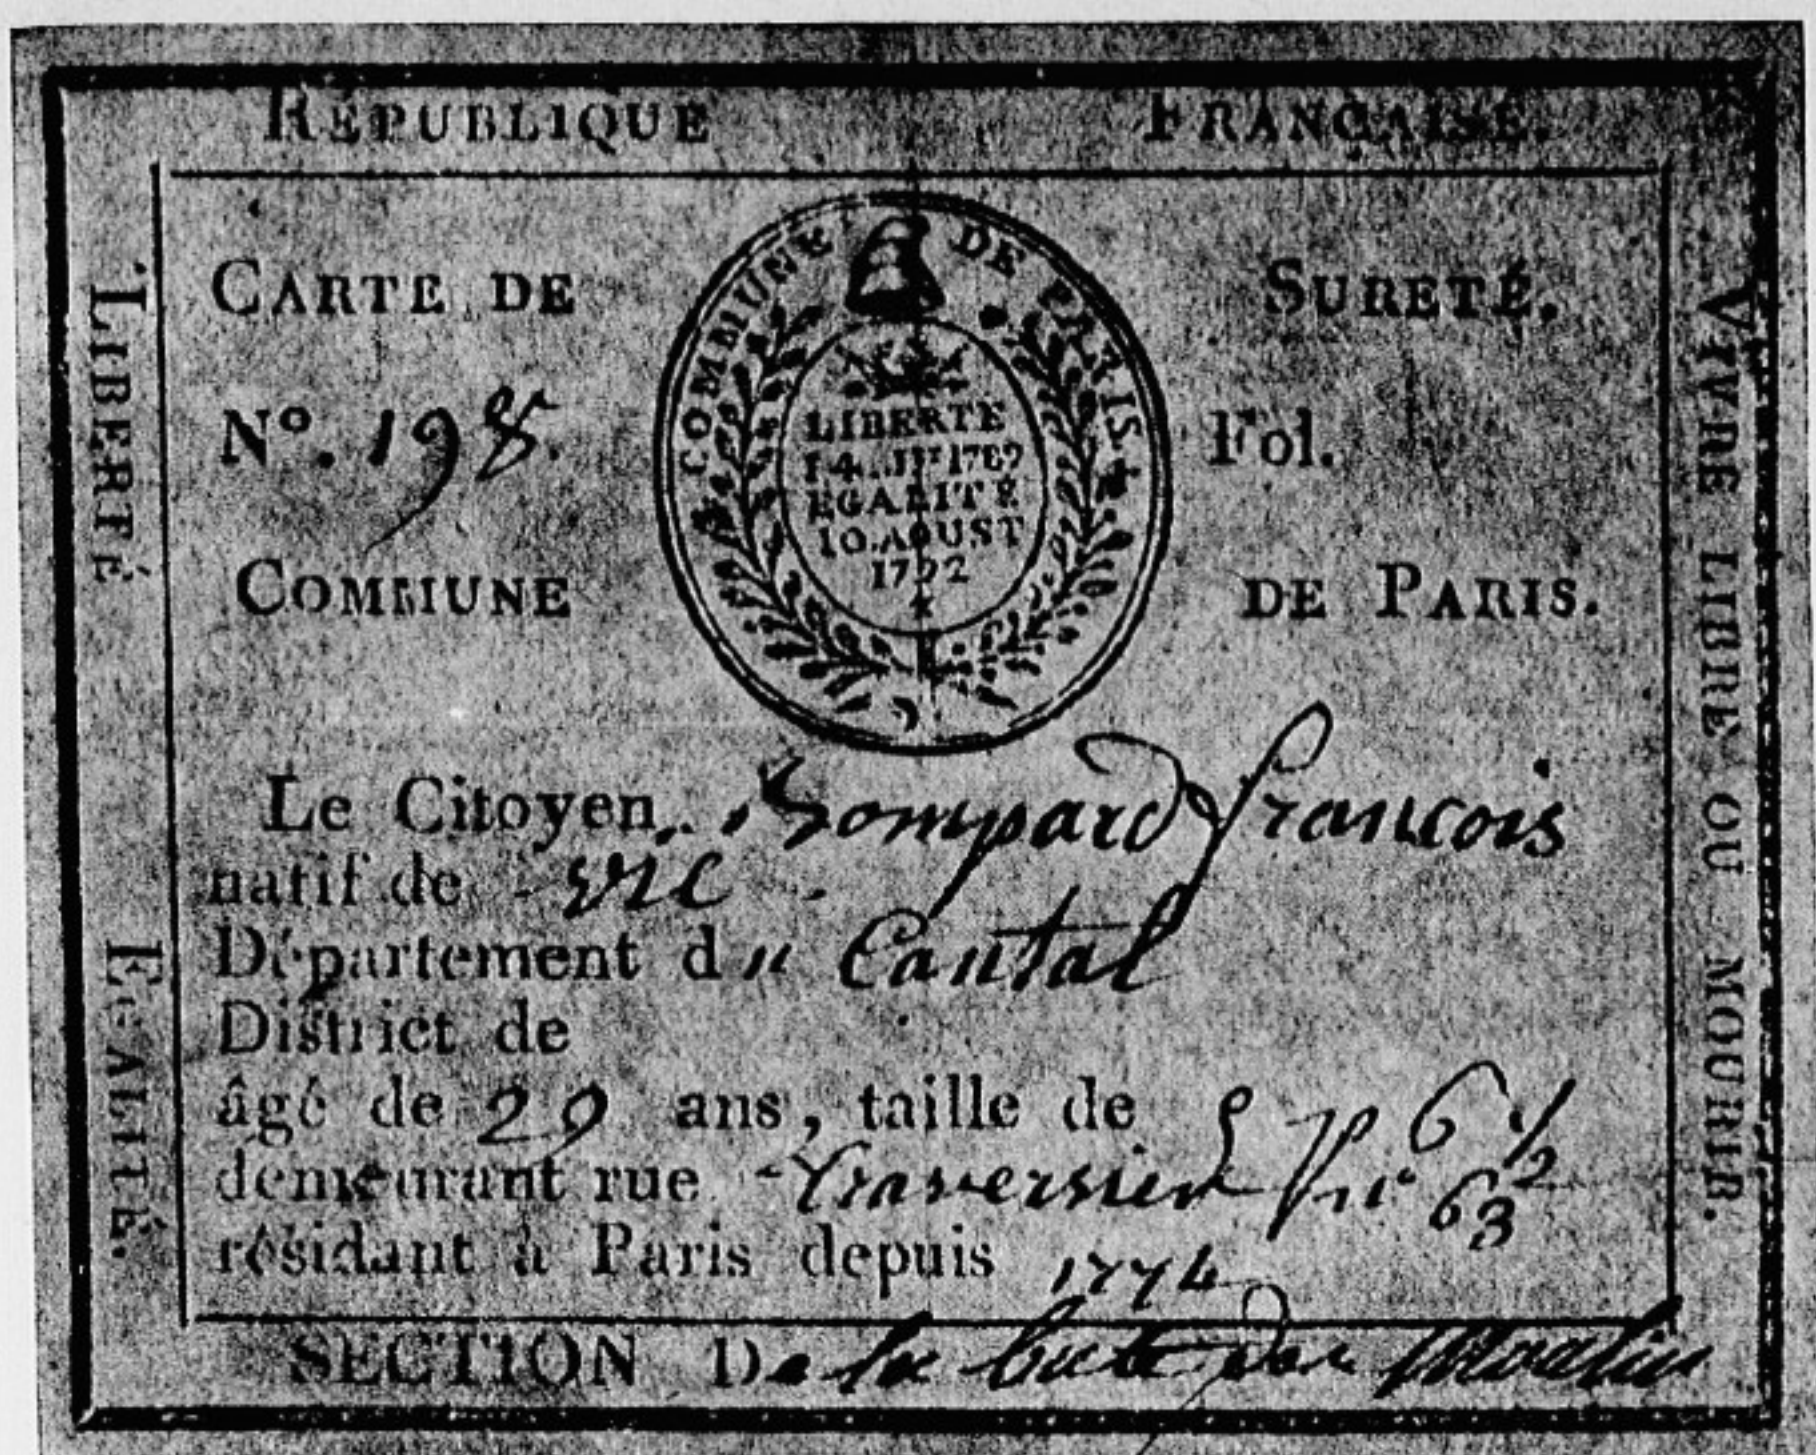 RÉPUBLIQUE FRANÇAISE.
LIBERTÉ
ÉGALITÉ.
VIVRE LIBRE OU MOURIR.
CARTE DE SURETÉ.
COMMUNE DE PARIS
LIBERTE
14 J.et 1789
EGALITE
10.AOUST
1792
N°. 198. Fol.
COMMUNE DE PARIS.
Le Citoyen Bompard francois
natif de vic
Département du Cantal
District de
âgé de 29 ans, taille de 5 p 6 1/2
demeurant rue traversiere n° 63
résidant à Paris depuis 1774
SECTION De la bute des Moulin